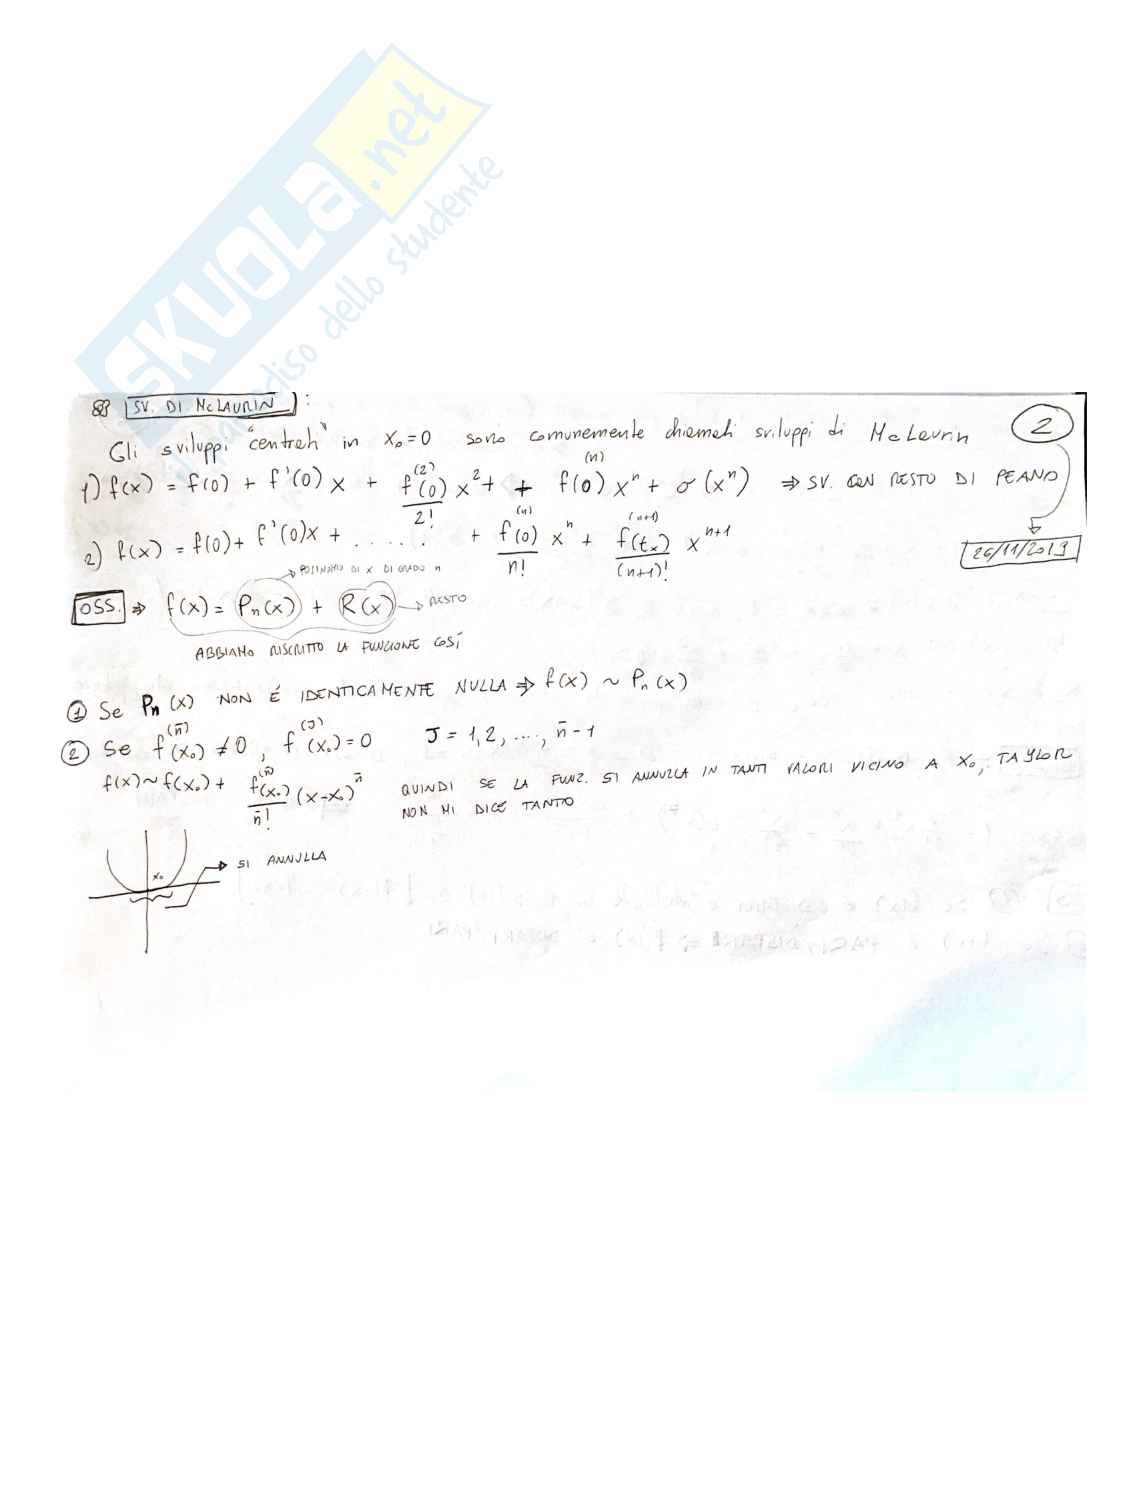 SKUOLA.net
il paradiso dello studente
SV. DI McLAURIN :
2
Gli sviluppi "centrati" in x₀=0 sono comunemente chiamati sviluppi di McLaurin
1) f(x) = f(0) + f'(0) x + f⁽²⁾(0)/2! x² + + f⁽ⁿ⁾(0) xⁿ + σ(xⁿ) ⇒ SV. CON RESTO DI PEANO
2) f(x) = f(0) + f'(0)x + ..... + f⁽ⁿ⁾(0)/n! xⁿ + f⁽ⁿ⁺¹⁾(tₓ)/(n+1)! xⁿ⁺¹
26/11/2019
→ POLINOMIO DI x DI GRADO n
OSS. ⇒ f(x) = Pₙ(x) + R(x) → RESTO
ABBIAMO RISCRITTO LA FUNZIONE COSÍ
① Se Pₙ(x) NON É IDENTICAMENTE NULLA ⇒ f(x) ~ Pₙ(x)
② Se f⁽ⁿ̄⁾(x₀) ≠ 0, f⁽ᴶ⁾(x₀) = 0 J = 1, 2, ...., n̄ - 1
f(x) ~ f(x₀) + f⁽ⁿ̄⁾(x₀)/n̄! (x-x₀)ⁿ̄ QUINDI SE LA FUNZ. SI ANNULLA IN TANTI VALORI VICINO A x₀, TAYLOR
NON MI DICE TANTO
x₀
→ SI ANNULLA